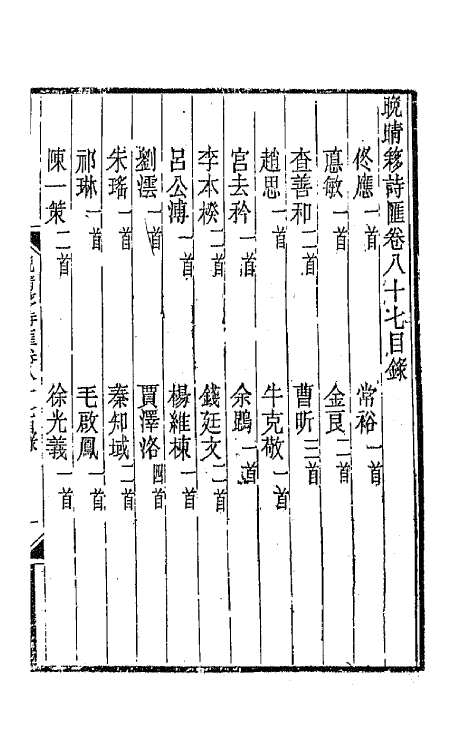 晩晴簃詩匯卷八十七目錄
佟應一首　常裕一首
德敏一首　金艮二首
查善和二首　曹昕三首
趙思一首　牛克敬一首
宮去矜一首　余鵾一首
李本楑二首　錢廷文二首
呂公溥一首　楊維棟一首
劉澐一首　賈澤洛四首
朱瑤一首　秦知域二首
祁琳一首　毛啟鳳一首
陳一策二首　徐光義一首